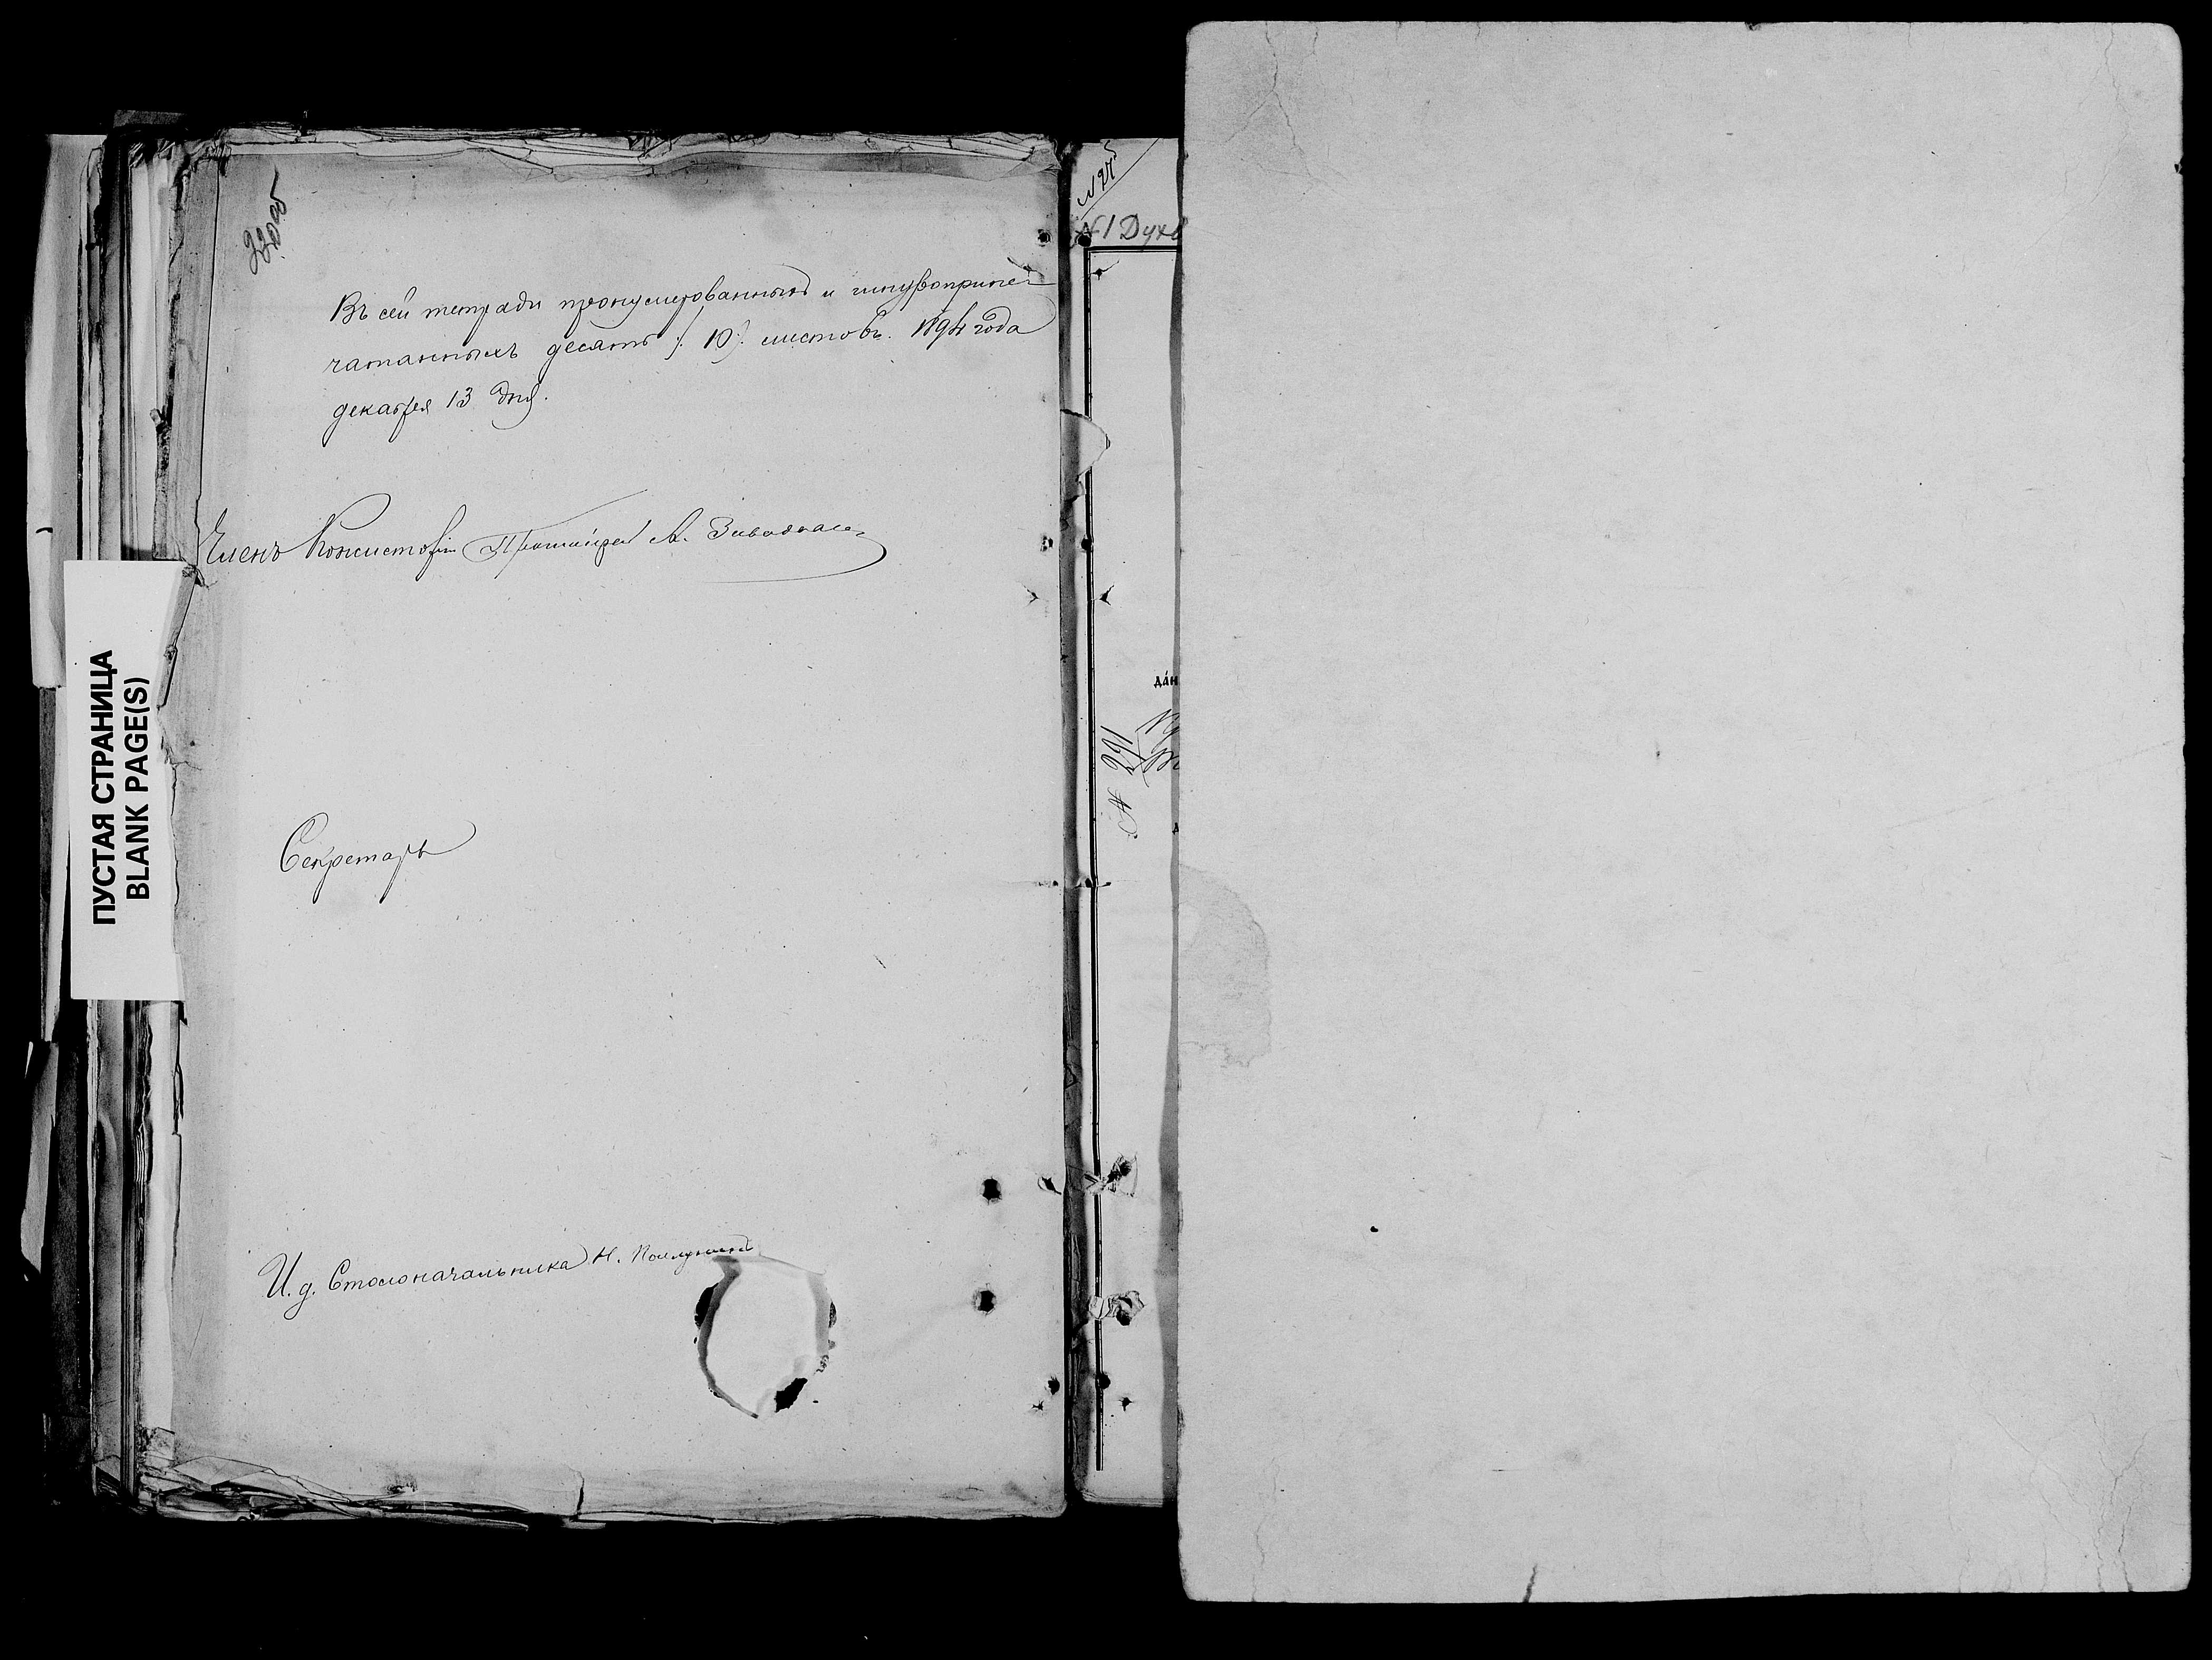 220об
Въ сей тетради пронумерованныхъ и шнуроприпе-
чатанныхъ десять /:10:/ листовъ. 1894 года
декабря 13 дня.
Членъ Консисторіи Протоіерей А.
Секретарь
И. д. Столоначальника Н.
ПУСТАЯ СТРАНИЦА
BLANK PAGE(S)
№ 1 Духо
да́н
№ 291